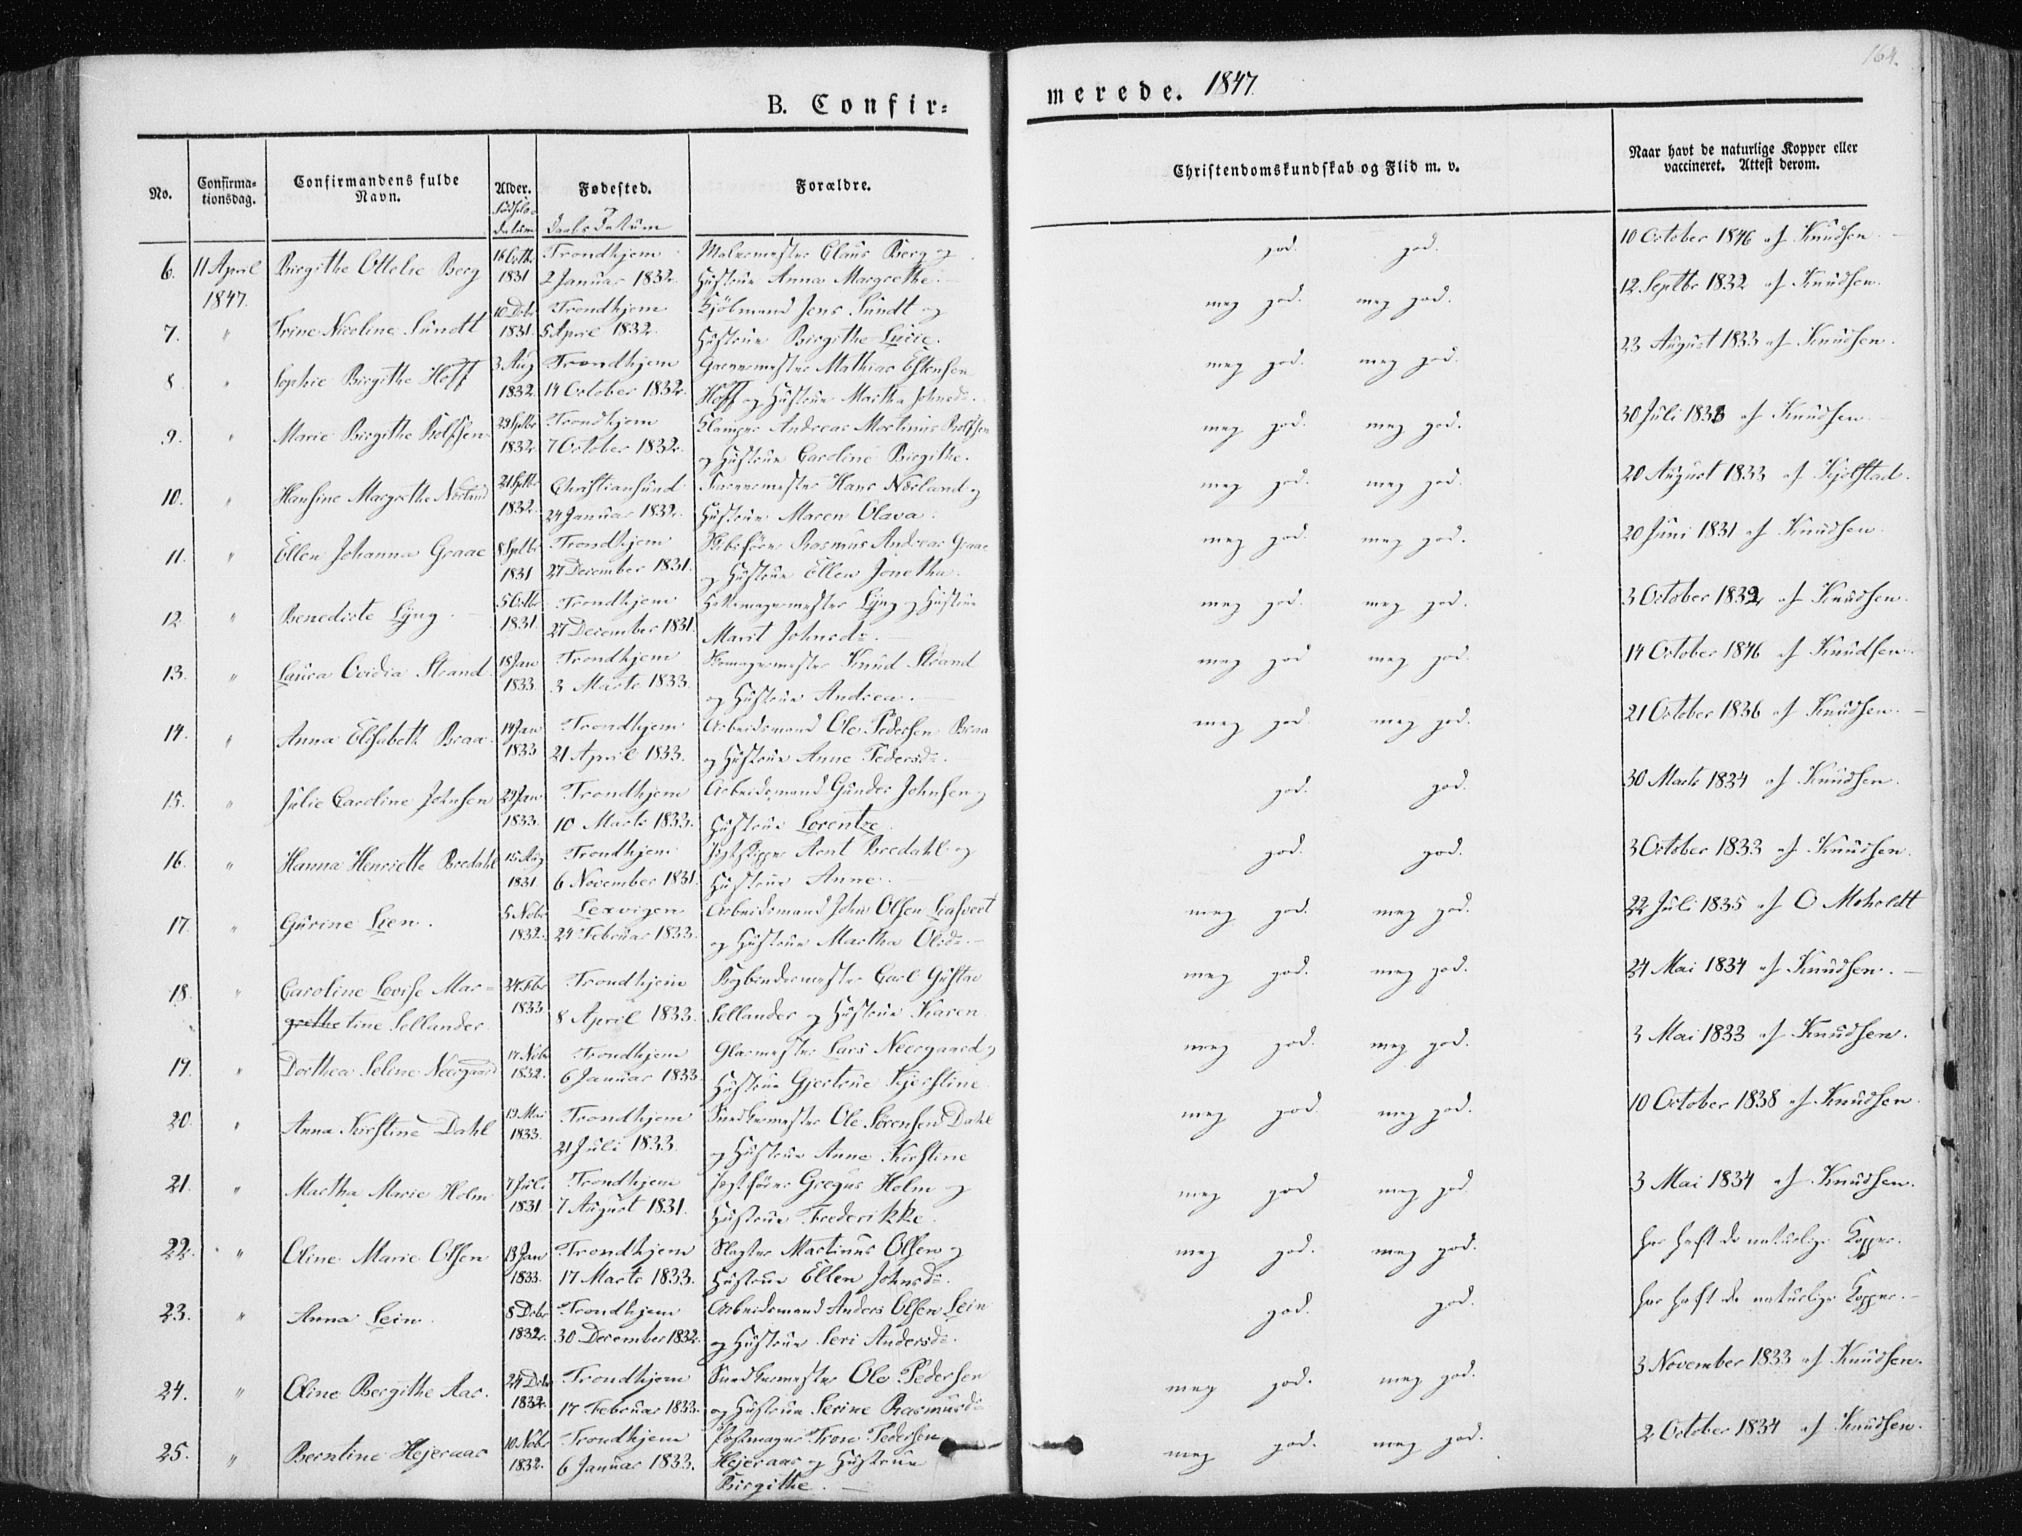 164.
B. Confir=
merede. 1847.
No.
Confirma=
tionsdag.
Confirmandens fulde
Navn.
Alder.
Fødsels-
datum
Fødested.
Daabsdatum
Forældre.
Christendomskundskab og Flid m. v.
Naar havt de naturlige Kopper eller
vaccineret. Attest derom.
6. 11 April Birgithe Ottelie Berg 16 Octbr Trondhjem Malermester Claus Berg og god. god. 10 October 1846 af Knudsen
1847. 1831 2 Januar 1832. Hustrue Anna Margrethe.
7. " Trine Nicoline Sundt 10 Decbr Trondhjem Kjøbmand Jens Sundt og meg god. meg god. 12 Septbr 1832 af Knudsen.
1831. 5 April 1832. Hustrue Birgithe Lucie.
8 " Sophie Birgithe Hoff 3 Aug Trondhjem Mathias Estensen meg god. meg god. 23 August 1833 af Knudsen.
1832. 14 October 1832. Hoff og Hustrue Martha Johnsd.
9. " Marie Birgithe Rolfsen 29 Septbr Trondhjem Andreas Martinus Rolfsen meg god. meg god. 30 Juli 1833 af Knudsen
1832 7 October 1832. og Hustrue Caroline Birgithe.
10. " Hansine Margrethe Nørland 21 Septbr Christiansund Hans Nørland og meg god. meg god. 20 August 1833 af Kjelstad.
1832. 24 Januar 1832. Hustrue Maren Olava.
11. " Ellen Johanna Graae 8 Septbr Trondhjem Rasmus Andreas Graae meg god. meg god. 20 Juni 1831 af Knudsen.
1831 27 December 1831. og Hustrue Ellen Jonetha.
12. " Benedicte Lyng. 5 Octbr Trondhjem Lyng og Hustrue meg god. meg god. 3 October 1832 af Knudsen.
1831. 27 December 1831. Marit Johnsd.
13. " Laura Ovidia Strand 18 Jan Trondhjem Knud Strand meg god meg god. 14 October 1846 af Knudsen
1833 3 Marts 1833. og Hustrue Andrea.
14. " Anna Elisabeth Braa 14 Jan Trondhjem Arbeidsmand Ole Pedersen Braa meg god. meg god. 21 October 1836 af Knudsen.
1833 21 April 1833. og Hustrue Anne Pedersd.
15. " Julie Caroline Johnsen 29 Jan Trondhjem Arbeidsmand Gunder Johnsen og god. god. 30 Marts 1834 af Knudsen.
1833. 10 Marts 1833. Hustrue Lorentze.
16. " Hanna Henriette Bredahl 15 Aug Trondhjem Arnt Bredahl og god. god. 3 October 1833 af Knudsen.
1831. 6 November 1831. Hustrue Anne.
17. " Gurine Lien. 5 Novbr Lexvigen Arbeidsmand John Olsen meg god. meg god. 22 Juli 1835 af O Moholdt
1832. 24 Februar 1833. og Hustrue Martha Olsd.
18. " Caroline Lovise Mar= 24 Febr Trondhjem Carl Gustav meg god. meg god. 24 Mai 1834 af Knudsen.
grethe tine Sellander 1833. 8 April 1833. Sellander og Hustrue Karen
19. " Dorthea Seline Neergaard 17 Novbr Trondhjem Glarmester Lars Neergaard og meg god. meg god. 3 Mai 1833 af Knudsen.
1832. 6 Januar 1833. Hustrue Gjertrue Kjerstine
20. " Anna Kirstine Dahl 19 Mai Trondhjem Snedkermester Ole Sørensen Dahl meg god. meg god. 10 October 1838 af Knudsen.
1833. 21 Juli 1833. og Hustrue Anne Kirstine
21. " Martha Marie Holm 7 Juli Trondhjem Gregus Holm og meg god meg god 3 Mai 1834 af Knudsen.
1831 7 August 1831. Hustrue Frederikke.
22. " Oline Marie Olsen 13 Jan Trondhjem Slagter Martinus Olsen og meg god. meg god. har haft de naturlige Kopper.
1833. 17 Marts 1833. Hustrue Ellen Johnsd.
23. " Anna Lein. 8 Decbr Trondhjem Arbeidsmand Anders Olsen Lein god. god. har haft de naturlige Kopper.
1832. 30 December 1832. og Hustrue Seri Andersd.
24. " Oline Bergithe Aas. 24 Decbr Trondhjem Snedkermester Ole Pedersen meg god. meg god. 3 November 1833 af Knudsen.
1832. 17 Februar 1833. og Hustrue Serine Rasmusd.
25. " Berntine Hejeraas 10 Novbr Trondhjem Tron Pedersen meg god. meg god. 2 October 1834 af Knudsen.
1832. 6 Januar 1833. Hejeraas og Hustrue
Birgithe.